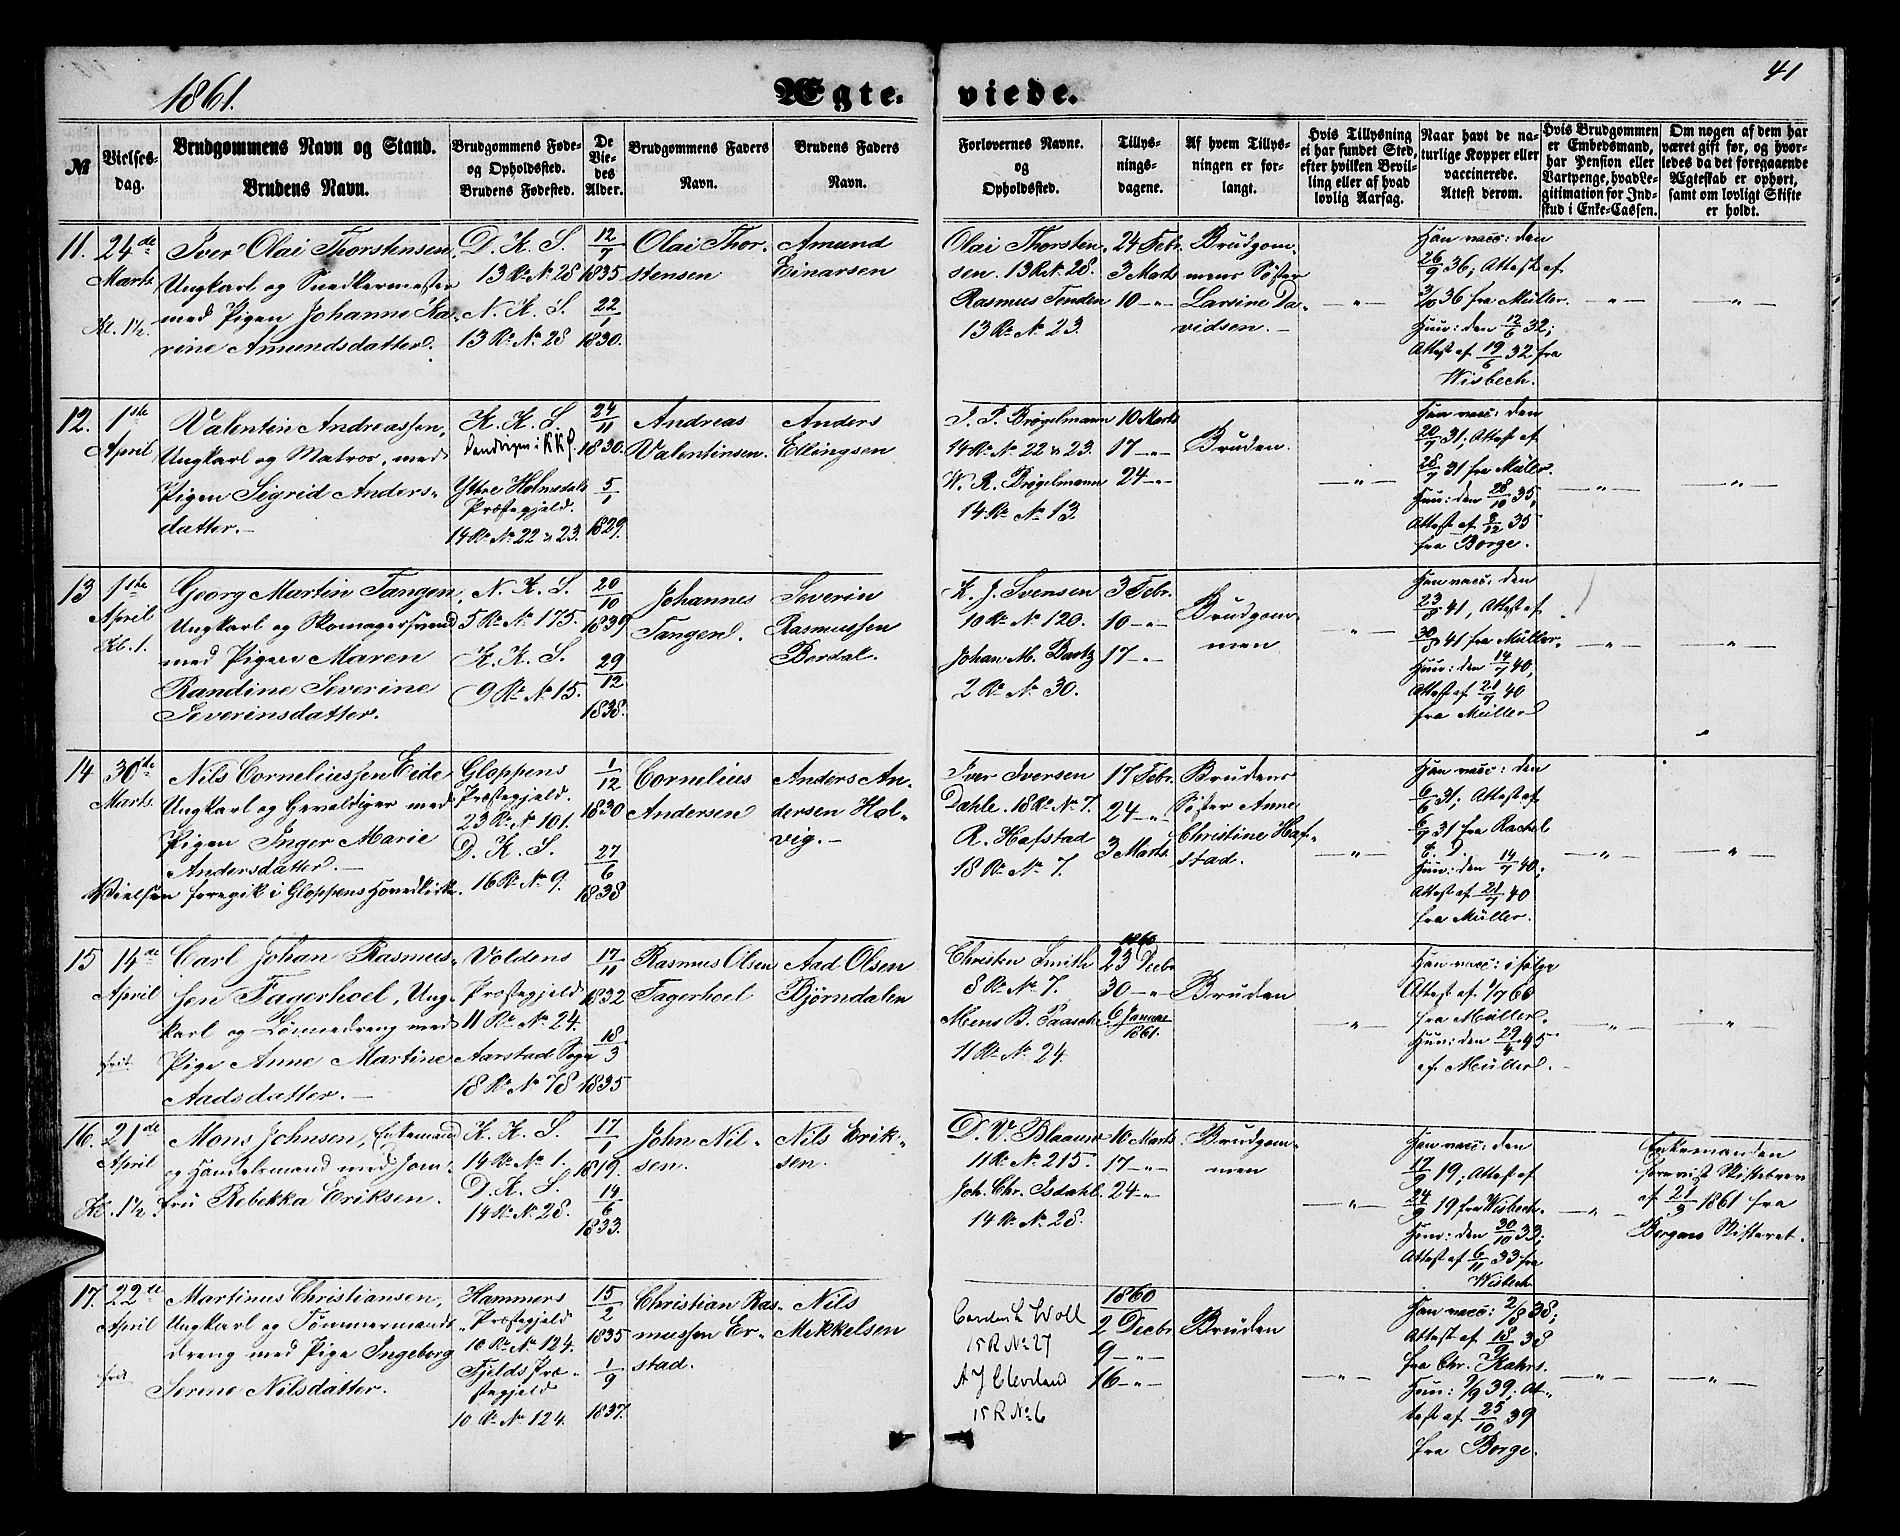 1861.
Ægte-
viede.
41
№
Vielses-
dag.
Brudgommens Navn og Stand.
Brudens Navn.
Brudgommens Føde-
og Opholdssted.
Brudens Fødested.
De
Vie-
des
Alder.
Brudgommens Faders
Navn.
Brudens Faders
Navn.
Forlovernes Navne.
og
Opholdssted.
Tillys-
nings-
dagene.
Af hvem Tillys-
ningen er for-
langt.
Hvis Tillysning
ei har fundet Sted
efter hvilken Bevil-
ling eller af hvad
lovlig Aarsag.
Naar havt de na-
turlige Kopper eller
vaccinerede.
Attest derom.
Hvis Brudgommen
er Embedsmand,
har Pension eller
Vartpenge, hvad Le-
gitimation for Ind-
skud i Enke-Cassen.
Om nogen af dem har
været gift før, og hvor-
ledes da det foregaaende
Ægteskab er ophørt,
samt om lovligt Skifte
er holdt.
11.
24de
Marts.
Kl. 1½.
Iver Olai Thorstensen,
Ungkarl og Snedkermester
med Pigen Johanne Ka-
rine Amundsdatter.
D. K. S.
13 R. N. 28
N. K. S.
13 R. No 28
12/7
1835
22/1
1830.
Olai Thor-
stensen
Amund
Einarsen
Olai Thorsten-
sen. 13 R. N. 28.
Rasmus Tenden
13 R. No 23.
24 Febr.
3 Marts
10 -"-
Brudgom-
mens Søster
Larsine Da-
vidsen. -
-"-
Han vacc: den
26/9 36; Attest af
3/10 36 fra Müller.
Hun: den 12/6 32;
Attest af 19/6 32 fra
Wisbech.
-"-
-"-
12.
1ste
April
Valentin Andreassen,
Ungkarl og Matros, med
Pigen Sigrid Anders-
datter. -
K. K. S.
Ytre Holmedals
Præstegjeld.
14 R. No 22 & 23.
24/11
1830.
5/1
1829.
Andreas
Valentinsen.
Anders
Ellingsen
J. P. Brøgelmann
14 R. No 22 & 23.
W. R. Brøgelmann
14 R. No 13.
10 Marts
17 -"-
24 -"-
Bruden.
-"-
Han vacc: den
20/7 31; Attest af
28/7 31 fra Müller.
Hun: den 28/10 35,
Attest af 8/12 35
fra Borge.
-"-
-"-
13
1ste
April
Kl. 1.
Georg Martin Tangen,
Ungkarl og Skomagersvend
med Pigen Maren
Randine Severine
Severinsdatter.
N. K. S.
5 R. No 175.
K. K. S.
9 R. No 15.
20/10
1839
29/12
1838.
Johannes
Tangen.
Severin
Rasmussen
Berdal.
K. J. Svensen
10 R. No 120.
Johan M. Bartz
2 R. No 30.
3 Febr.
10 -"-
17 -"-
Brudgom-
men
-"-
Han vacc: den
23/8 41, Attest af
30/8 41 fra Müller.
Hun: den 14/7 40,
Attest af 21/7 40
fra Müller
-"-
-"-
14
30te
Marts.
Nils Corneliussen Eide
Ungkarl og Gevaldiger med
Pigen Inger Marie
Andersdatter. -
Vielsen foregik i Gloppens Hovedkirke.
Gloppens
Præstegjeld.
23 R. No 101.
D. K. S.
16 R. No 9.
1/12
1830
27/6
1838
Cornelius
Andersen
Anders An-
dersen Hol-
vig. -
Iver Iversen
Dahle. 18 R. No 7.
R. Hafstad
18 R. No 7.
17 Febr.
24 -"-
3 Marts.
Brudens
Søster Anne
Christine Haf-
stad.
-"-
Han vacc: den
6/6 31; Attest af
6/7 31 fra Rachel
E. D.
Hun: den 14/7 40.
Attest af 21/7 40
fra Müller.
-"-
-"-
15
14de
April
frit.
Carl Johan Rasmus-
sen Fagerhoel, Ung-
karl og Lønnedreng med
Pige Anne Martine
Aadsdatter. -
Voldens
Præstegjeld
11 R. No 24.
Aarstads Sogn
18 R. No 78
17/11
1832
18/3
1835
Rasmus Olsen
Fagerhoel
Aad Olsen
Bjørndalen
Christen Smith
8 R. No 7.
Mens B. Paasche
11 R. No 24.
1860
23 Decbr
30 -"-
6 Januar
1861.
Bruden
-"-
Han vacc: ifølge
Attest af 1/7 60
fra Müller.
Hun: den 29/4 45
af Müller. -
-"-
"
16.
21de
April
Kl. 1½.
Mons Johnsen, Enkemand
og Handelsmand med Jom-
fru Rebekka Eriksen.
K. K. S.
14 R. No 1.
D. K. S.
14 R. No 28.
17/1
1819,
14/6
1833.
John Nil-
sen.
Nils Erik-
sen.
D. V. Blaauw
11 R. No 215.
Joh. Chr. Isdahl
14 R. No 28.
10 Marts
17 -"-
24 -"-
Brudgom-
men
-"-
Han vacc: den
17/9 19; Attest af
24/9 19 fra Wisbech.
Hun: den 30/10 33;
Attest af 6/11 33 fra
Wisbech
-"-
Enkemanden
forevist Skiftebrev
af 21/3 1861 fra
Bergens Skifteret.
17.
22de
April
frit
Martinus Christiansen,
Ungkarl og Tømmermands-
dreng med Pige Ingeborg
Serine Nilsdatter.
Hammers
Præstegjeld
10 R. No 124.
Fjelds Præ-
stegjeld
10 R. No 124.
15/2
1835
1/9
1837.
Christian Ras-
mussen Er-
stad.
Nils
Mikkelsen
15 R No 27
15 R No 6
1860
2 Decbr
9 -"-
16 -"-
Bruden
-"-
Han vacc: 2/8 38;
Attest af 18/9 38
fra Chr. Kahrs.
Hun: 9/9 39; At-
test af 25/10 39
fra Borge.
-"-
-"-